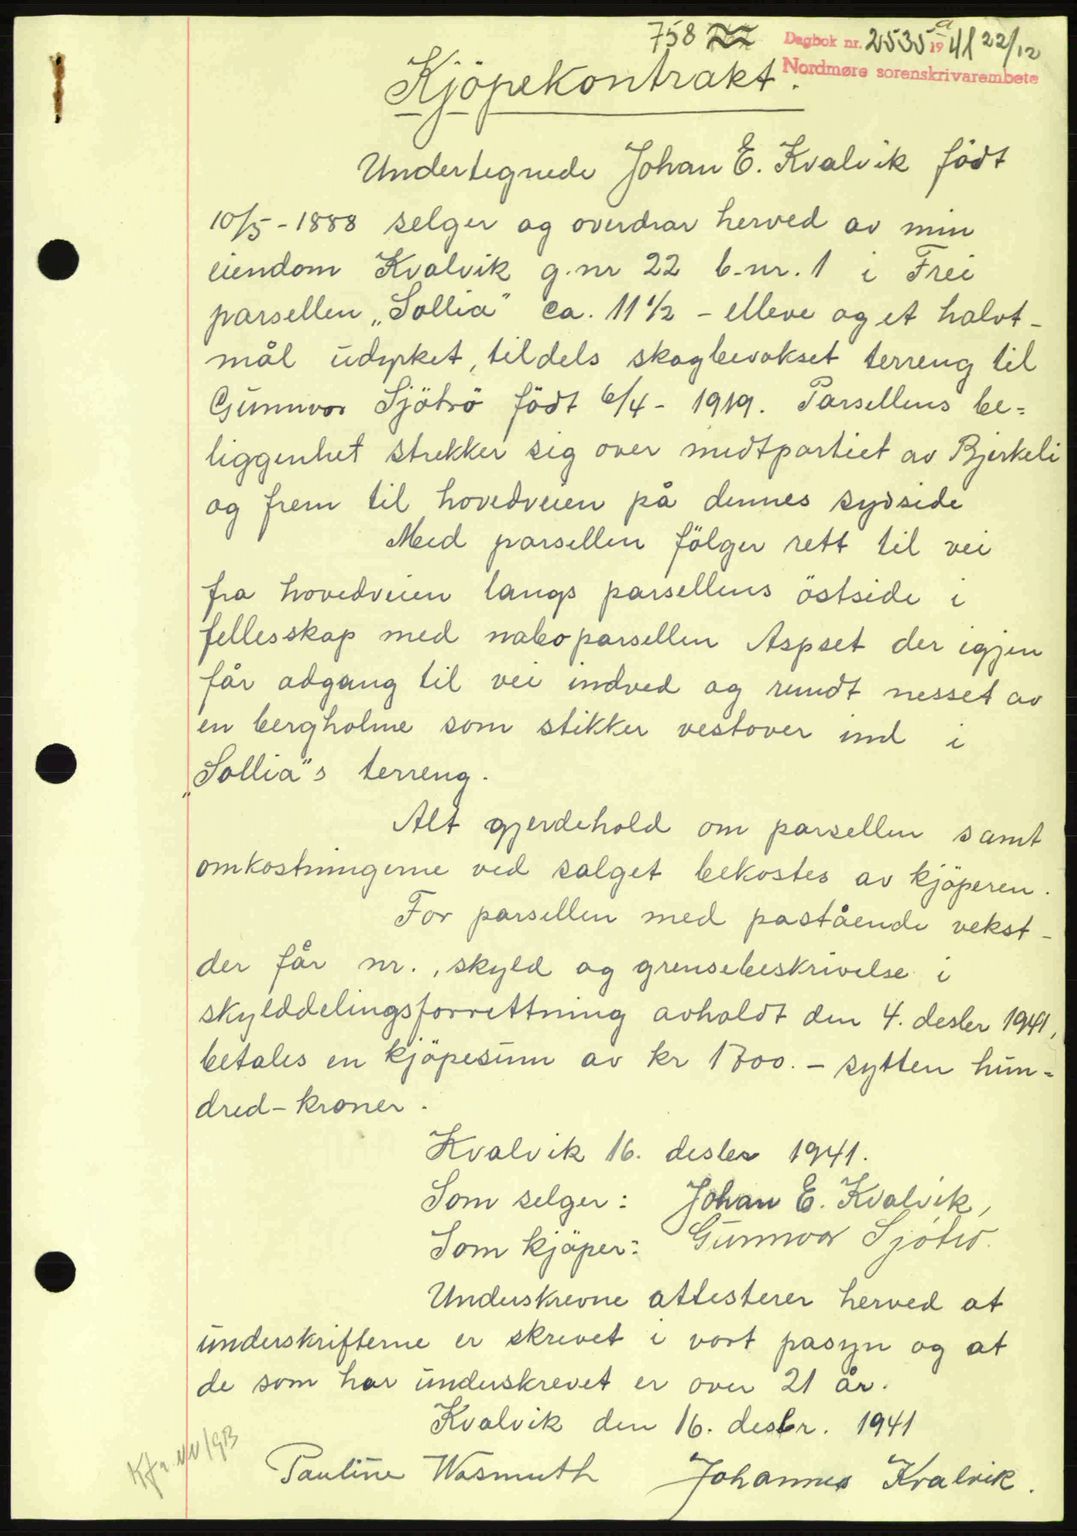 758
Dagbok nr. 2535a 1941 22/12
Nordmøre sorenskrivarembete
Kjöpekontrakt.
Undertegnede Johan E. Kvalvik födt
10/5-1888 selger og overdrar herved av min
eiendom Kvalvik g.nr 22 b.nr. 1 i Frei
parsellen „Sollia" ca. 11 1/2 - elleve og et halvt-
mål udyrket, tildels skogbevokset terreng til
Gunnvor Sjötrö födt 6/4 - 1919. Parsellens be=
liggenhet strekker sig over midtpartiet av Bjerkeli
og frem til hovedveien på dennes sydside
Med parsellen fölger rett til vei
fra hovedveien langs parsellens östside i
fellesskap med naboparsellen Aspset der igjen
får adgang til vei indved og rundt nesset av
en bergholme som stikker vestover ind i
„Sollia"s terreng.
Alt gjerdehold om parsellen samt
omkostningerne ved salget bekostes av kjöperen.
For parsellen med påstående vekst-
der får nr., skyld og grensebeskrivelse i
skylddelingsforrettning avholdt den 4. desbr 1941,
betales en kjöpesum av kr 1700.- sytten hun=
dred-kroner.
Kvalvik 16. desbr 1941.
Som selger: Johan E. Kvalvik,
Som kjöper: Gunnvor Sjötrö.
Underskrevne attesterer herved at
underskrifterne er skrevet i vort påsyn og at
de som har underskrevet er over 21 år.
Kvalvik den 16. desbr. 1941
Pauline Wasmuth Johannes Kvalvik.